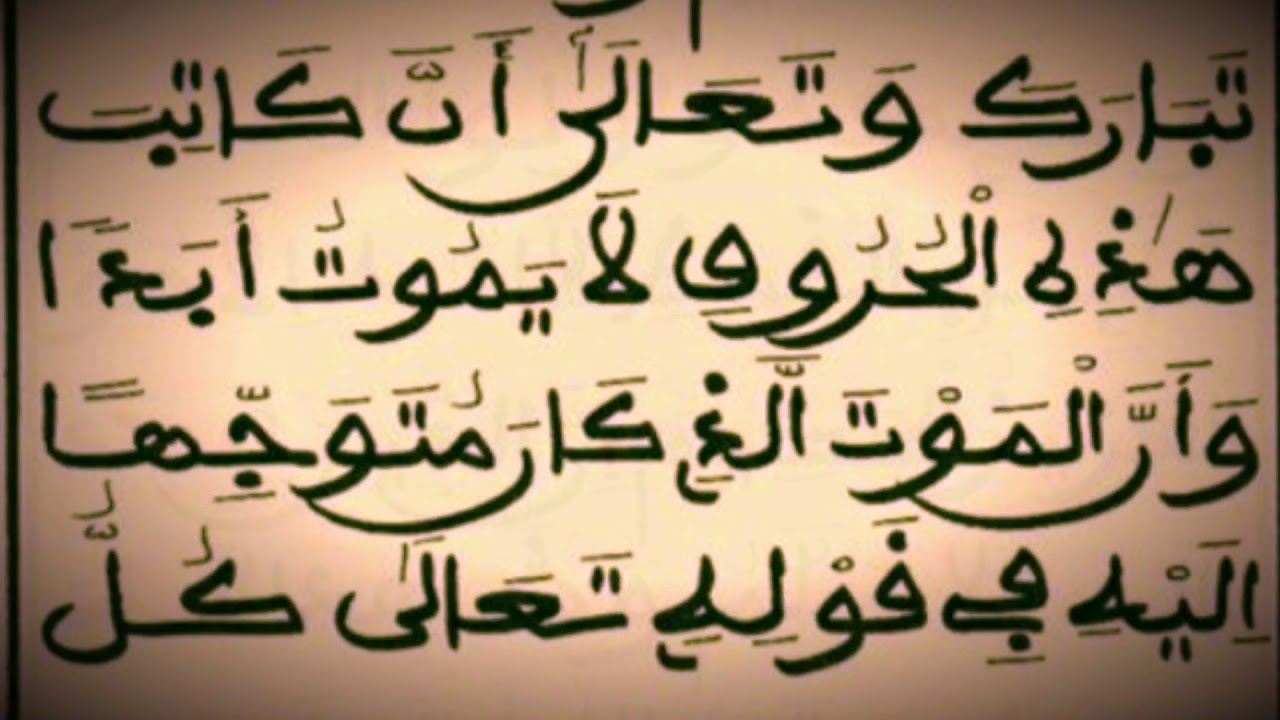 تَبَارَكَ وَتَعَالَىٰ أَنَّ كَاتِبَ
هَٰذِهِ الْحُرُوفِ لَا يَمُوتُ أَبَدًا
وَأَنَّ الْمَوْتَ الَّذِي كَانَ مُتَوَجِّهًا
إِلَيْهِ فِي قَوْلِهِ تَعَالَىٰ كُلُّ